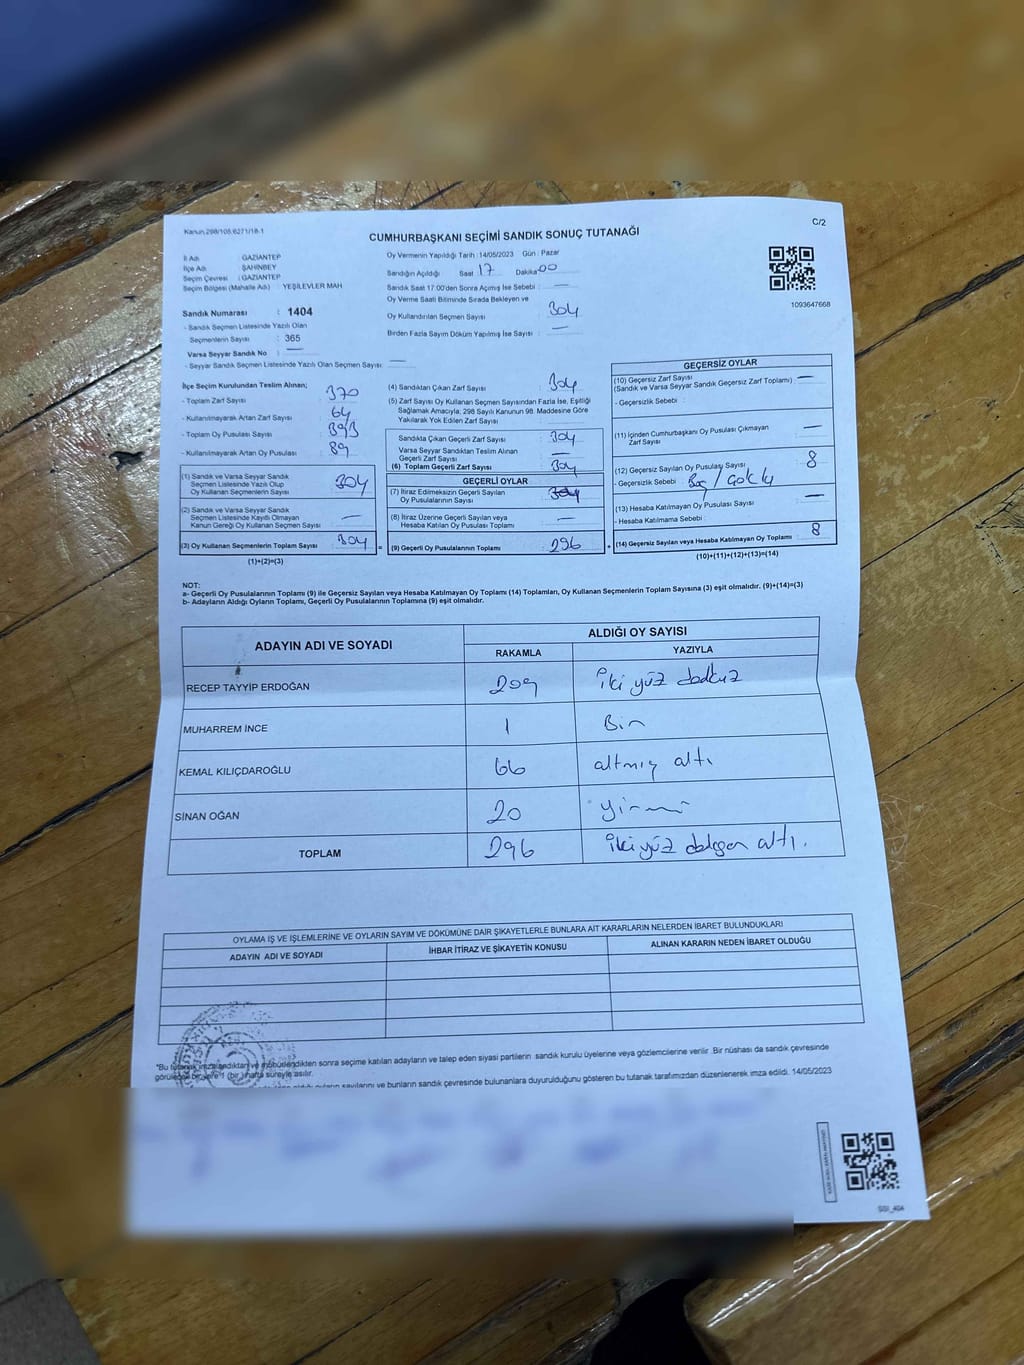 Kanun:298/105,6271/18-1
C/2
CUMHURBAŞKANI SEÇİMİ SANDIK SONUÇ TUTANAĞI
İl Adı : GAZİANTEP
İlçe Adı : ŞAHİNBEY
Seçim Çevresi : GAZİANTEP
Seçim Bölgesi (Mahalle Adı) : YEŞİLEVLER MAH
Sandık Numarası : 1404
- Sandık Seçmen Listesinde Yazılı Olan
Seçmenlerin Sayısı : 365
Varsa Seyyar Sandık No : —
- Seyyar Sandık Seçmen Listesinde Yazılı Olan Seçmen Sayısı : —
Oy Vermenin Yapıldığı Tarih : 14/05/2023 Gün : Pazar
Sandığın Açıldığı Saat 17 Dakika 00
Sandık Saat 17:00'den Sonra Açımış İse Sebebi : —
Oy Verme Saati Bitiminde Sırada Bekleyen ve
Oy Kullandırılan Seçmen Sayısı : 304
Birden Fazla Sayım Döküm Yapılmış İse Sayısı : —
1093647668
İlçe Seçim Kurulundan Teslim Alınan;
- Toplam Zarf Sayısı : 370
- Kullanılmayarak Artan Zarf Sayısı : 64
- Toplam Oy Pusulası Sayısı : 393
- Kullanılmayarak Artan Oy Pusulası : 89
(1) Sandık ve Varsa Seyyar Sandık
Seçmen Listesinde Yazılı Olup
Oy Kullanan Seçmenlerin Sayısı : 304
(2) Sandık ve Varsa Seyyar Sandık
Seçmen Listesinde Kayıtlı Olmayan
Kanun Gereği Oy Kullanan Seçmen Sayısı : —
(3) Oy Kullanan Seçmenlerin Toplam Sayısı : 304
(1)+(2)=(3)
=
(4) Sandıktan Çıkan Zarf Sayısı : 304
(5) Zarf Sayısı Oy Kullanan Seçmen Sayısından Fazla İse, Eşitliği
Sağlamak Amacıyla; 298 Sayılı Kanunun 98. Maddesine Göre
Yakılarak Yok Edilen Zarf Sayısı :
Sandıkta Çıkan Geçerli Zarf Sayısı : 304
Varsa Seyyar Sandıktan Teslim Alınan
Geçerli Zarf Sayısı : —
(6) Toplam Geçerli Zarf Sayısı : 304
GEÇERLİ OYLAR
(7) İtiraz Edilmeksizin Geçerli Sayılan
Oy Pusulalarının Sayısı : 304
(8) İtiraz Üzerine Geçerli Sayılan veya
Hesaba Katılan Oy Pusulası Toplamı : —
(9) Geçerli Oy Pusulalarının Toplamı : 296
+
GEÇERSİZ OYLAR
(10) Geçersiz Zarf Sayısı
(Sandık ve Varsa Seyyar Sandık Geçersiz Zarf Toplamı) : —
- Geçersizlik Sebebi :
(11) İçinden Cumhurbaşkanı Oy Pusulası Çıkmayan
Zarf Sayısı : —
(12) Geçersiz Sayılan Oy Pusulası Sayısı : 8
- Geçersizlik Sebebi : Boş / Çoklu
(13) Hesaba Katılmayan Oy Pusulası Sayısı : —
- Hesaba Katılmama Sebebi :
(14) Geçersiz Sayılan veya Hesaba Katılmayan Oy Toplamı : 8
(10)+(11)+(12)+(13)=(14)
NOT:
a- Geçerli Oy Pusulalarının Toplamı (9) ile Geçersiz Sayılan veya Hesaba Katılmayan Oy Toplamı (14) Toplamları, Oy Kullanan Seçmenlerin Toplam Sayısına (3) eşit olmalıdır. (9)+(14)=(3)
b- Adayların Aldığı Oyların Toplamı, Geçerli Oy Pusulalarının Toplamına (9) eşit olmalıdır.
ADAYIN ADI VE SOYADI ALDIĞI OY SAYISI
RAKAMLA YAZIYLA
RECEP TAYYİP ERDOĞAN 209 iki yüz dokuz
MUHARREM İNCE 1 Bir
KEMAL KILIÇDAROĞLU 66 altmış altı
SİNAN OĞAN 20 yirmi
TOPLAM 296 iki yüz doksan altı.
OYLAMA İŞ VE İŞLEMLERİNE VE OYLARIN SAYIM VE DÖKÜMÜNE DAİR ŞİKAYETLERLE BUNLARA AİT KARARLARIN NELERDEN İBARET BULUNDUKLARI
ADAYIN ADI VE SOYADI İHBAR İTİRAZ VE ŞİKAYETİN KONUSU ALINAN KARARIN NEDEN İBARET OLDUĞU
*Bu tutanak imzalandıktan ve mühürlendikten sonra seçime katılan adayların ve talep eden siyasi partilerin sandık kurulu üyelerine veya gözlemcilerine verilir. Bir nüshası da sandık çevresinde
görülecek bir yere 1 (bir) hafta süreyle asılır.
oyların sayılarını ve bunların sandık çevresinde bulunanlara duyurulduğunu gösteren bu tutanak tarafımızdan düzenlenerek imza edildi. 14/05/2023